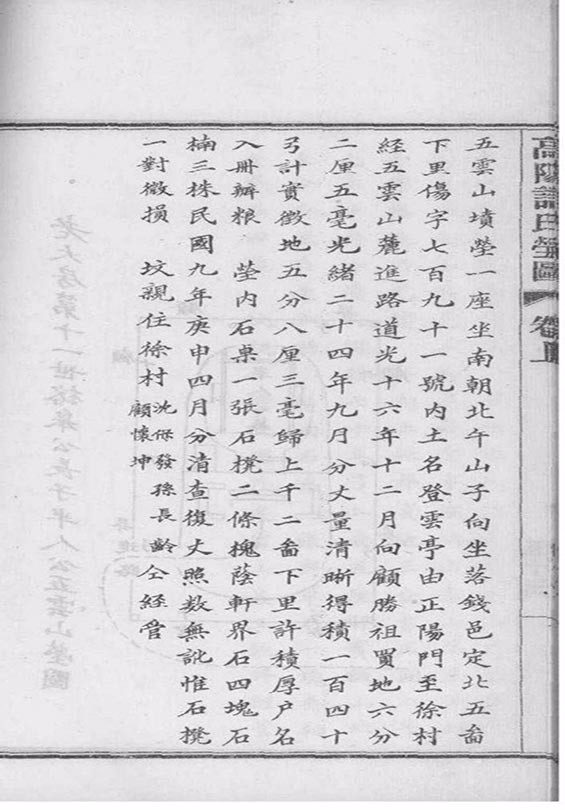 高陽許氏塋圖 卷上
五雲山墳塋一座坐南朝北午山子向坐落錢邑定北五啚
下里傷字七百九十一號內土名登雲亭由正陽門至徐村
經五雲山麓進路道光十六年十二月向顧勝祖買地六分
二厘五毫光緒二十四年九月分丈量清晰得積一百四十
弓計實徵地五分八厘三毫歸上千二啚下里許積厚户名
入冊辦粮 塋内石桌一張石櫈二條槐蔭軒界石四塊石
楠三株民國九年庚申四月分清查復丈照数無訛惟石櫈
一對微損 坟親住徐村沈保發孫長齡仝經管
顧懷坤
老大房第十一世銘舉公長子半人公五雲山塋圖